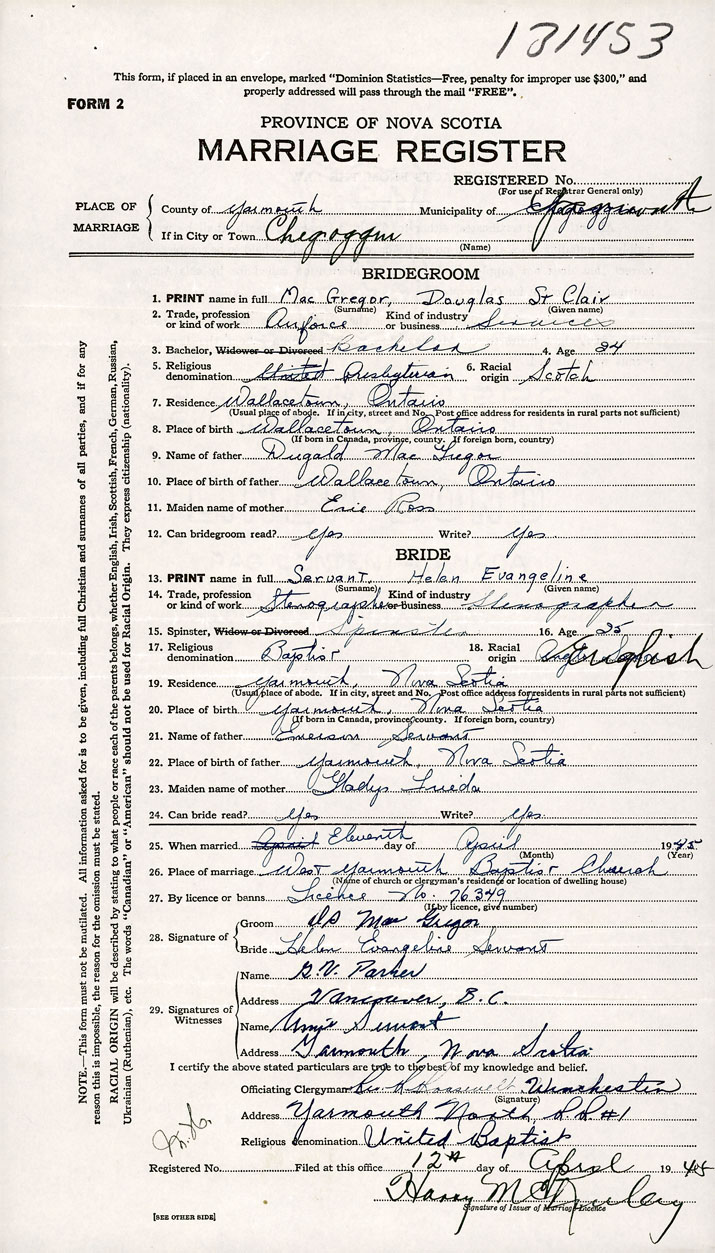 131453
This form, if placed in an envelope, marked "Dominion Statistics—Free, penalty for improper use $300," and
properly addressed will pass through the mail "FREE".
FORM 2
PROVINCE OF NOVA SCOTIA
MARRIAGE REGISTER
REGISTERED No.
(For use of Registrar General only)
PLACE OF MARRIAGE
County of Yarmouth Municipality of Yarmouth
If in City or Town Chegoggin
(Name)
BRIDEGROOM
1. PRINT name in full Mac Gregor, Douglas St Clair
(Surname) (Given name)
2. Trade, profession or kind of work Airforce Kind of industry or business Services
3. Bachelor, Widower or Divorced Bachelor 4. Age 24
5. Religious denomination United Presbyterian 6. Racial origin Scotch
7. Residence Wallacetown, Ontario
(Usual place of abode. If in city, street and No. Post office address for residents in rural parts not sufficient)
8. Place of birth Wallacetown, Ontario
(If born in Canada, province, county. If foreign born, country)
9. Name of father Dugald Mac Gregor
10. Place of birth of father Wallacetown, Ontario
11. Maiden name of mother Ross
12. Can bridegroom read? Yes Write? Yes
BRIDE
13. PRINT name in full Servant, Helen Evangeline
(Surname) (Given name)
14. Trade, profession or kind of work Stenographer Kind of industry or business Stenographer
15. Spinster, Widow or Divorced Spinster 16. Age 25
17. Religious denomination Baptist 18. Racial origin English
19. Residence Yarmouth, Nova Scotia
(Usual place of abode. If in city, street and No. Post office address for residents in rural parts not sufficient)
20. Place of birth Yarmouth, Nova Scotia
(If born in Canada, province, county. If foreign born, country)
21. Name of father Emerson Servant
22. Place of birth of father Yarmouth, Nova Scotia
23. Maiden name of mother Gladys
24. Can bride read? Yes Write? Yes
25. When married April Eleventh day of April 1945
(Month) (Year)
26. Place of marriage West Yarmouth Baptist Church
(Name of church or clergyman's residence or location of dwelling house)
27. By licence or banns Licence No. 76349
(If by licence, give number)
28. Signature of
Groom Mac Gregor
Bride Helen Evangeline Servant
29. Signatures of Witnesses
Name G.V. Parker
Address Vancouver, B.C.
Name Servant
Address Yarmouth, Nova Scotia
I certify the above stated particulars are true to the best of my knowledge and belief.
Officiating Clergyman Roosevelt Winchester
(Signature)
Address Yarmouth North R.R. #1
Religious denomination United Baptist
Registered No. Filed at this office 12th day of April 1945
Harry McKinley
Signature of Issuer of Marriage Licence
[SEE OTHER SIDE]
NOTE.—This form must not be mutilated. All information asked for is to be given, including full Christian and surnames of all parties, and if for any
reason this is impossible, the reason for the omission must be stated.
RACIAL ORIGIN will be described by stating to what people or race each of the parents belongs, whether English, Irish, Scottish, French, German, Russian,
Ukrainian (Ruthenian), etc. The words "Canadian" or "American" should not be used for Racial Origin. They express citizenship (nationality).